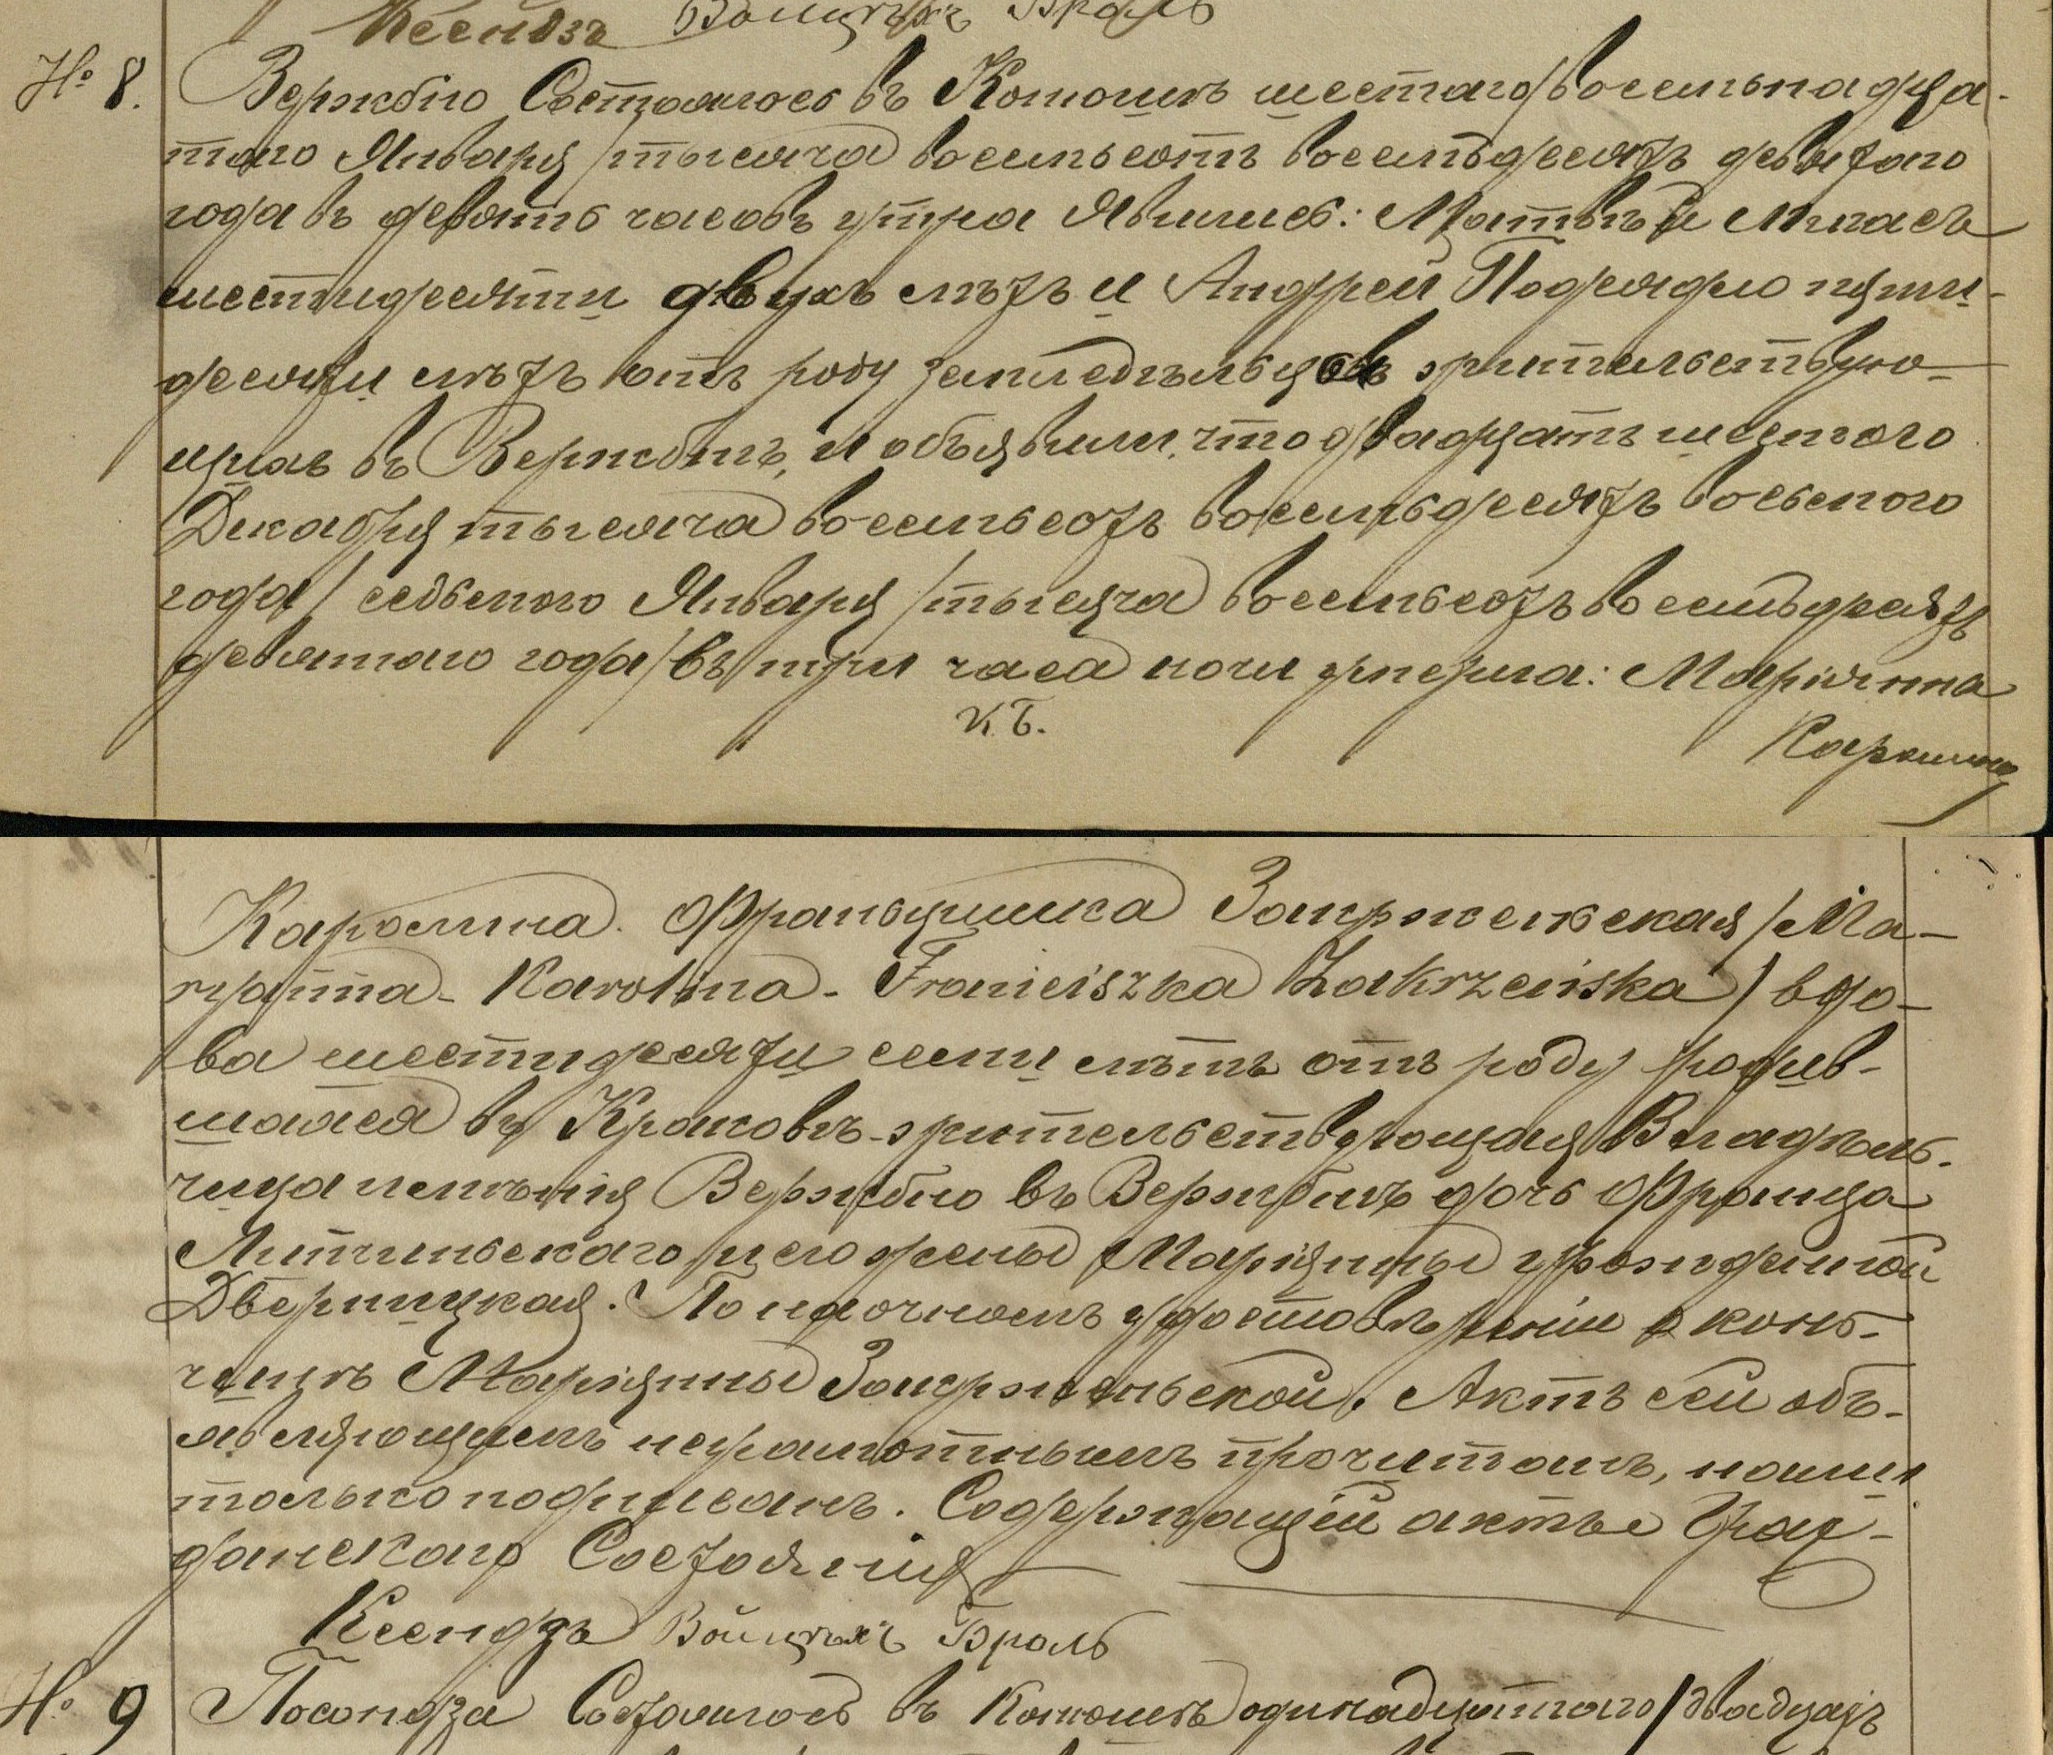 Ксендзъ Войцехъ Броль
№ 8. Вержбно Состоялось въ Конюшѣ шестаго/восемьнадца-
таго Января/тысяча восемьсотъ восемьдесятъ девятаго
года въ девять часовъ утра Явились: Матвѣй
шестидесяти двухъ лѣтъ и Андрей Подсядло пяти-
десяти лѣтъ отъ роду земледѣльцовъ жительствую-
щихъ въ Вержбнѣ, и объявили, что двадцать шестого
Декабря тысяча восемьсотъ восемьдесятъ восьмого
года/седьмого Января/тысяча восемьсотъ восемьдесятъ
девятаго года/въ три часа ночи умерла: Маріянна
К. Б.
Каролина
Каролина. Францишка Закрженьская/Ма-
ryanna- Karolina- Franciszka Zakrzeńska) вдо-
ва шестидесяти семи лѣтъ отъ роду родив-
шаяся въ Краковѣ-жительствующая Владѣль-
чица имѣнія Вержбно въ Вержбнѣ дочь Франца
Лѣтиньскаго и его жены Маріянны урожденной
Дверницкая. По наочномъ удостовѣреніи о конь-
чинѣ Маріянны Закрженьской. Актъ сей объ-
являющимъ неграмотнымъ прочитанъ, нами
только подписанъ. Содержащій акты Граж-
данскаго Состоянія
Ксендзъ Войцехъ Броль
№ 9 Посондза Состоялось въ Конюшѣ одинадцатаго/двадцать